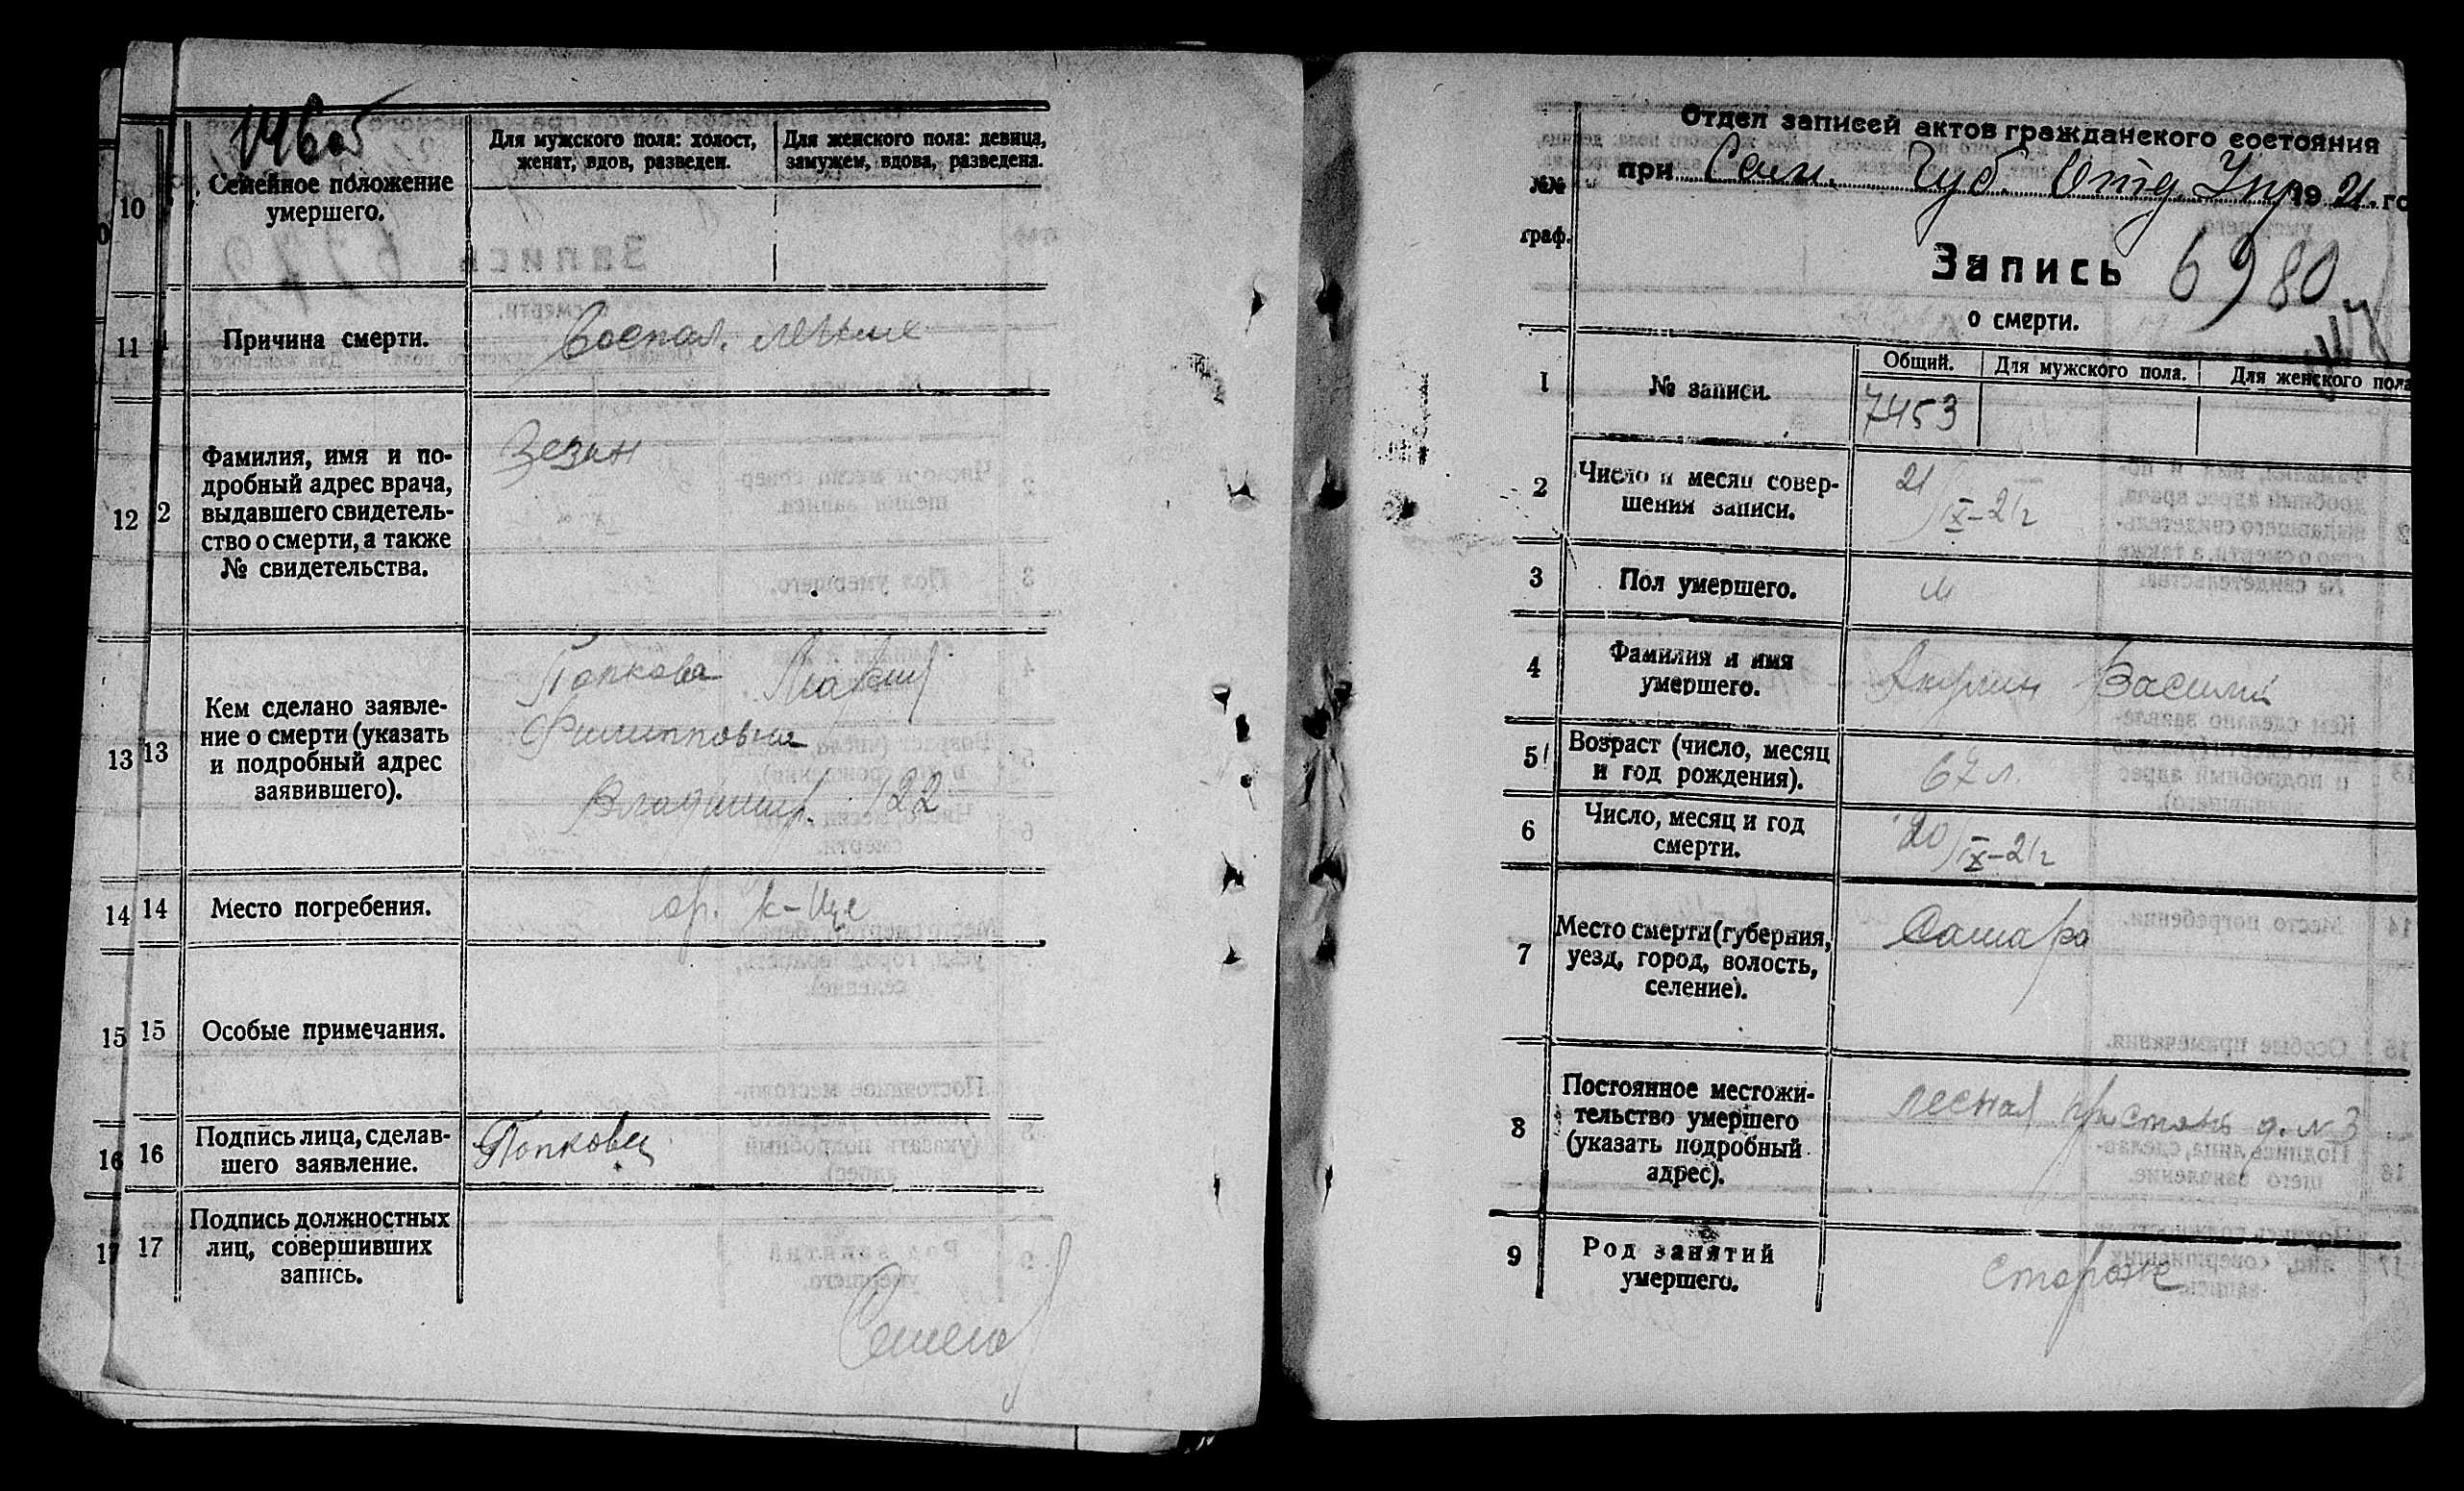 10
Семейное положение
умершего.
Для мужского пола: холост,
женат, вдов, разведен.
Для женского пола: девица,
замужем, вдова, разведена.
11
Причина смерти.
Воспал. легких
12
Фамилия, имя и по-
дробный адрес врача,
выдавшего свидетель-
ство о смерти, а также
№ свидетельства.
Зезин
13
Кем сделано заявле-
ние о смерти (указать
и подробный адрес
заявившего).
Попкова Мария
Филипповна
Владимир. 122
14
Место погребения.
гр. к-ще
15
Особые примечания.
16
Подпись лица, сделав-
шего заявление.
Попкова
17
Подпись должностных
лиц, совершивших
запись.
Отдел записей актов гражданского состояния
при Сам. Губ. Отд. Упр 1921. го
№№
граф.
Запись 6980
о смерти.
1
№ записи.
Общий.
Для мужского пола.
Для женского пола
7453
2
Число и месяц совер-
шения записи.
21/IX-21г
3
Пол умершего.
м
4
Фамилия и имя
умершего.
Акулин Василий
5
Возраст (число, месяц
и год рождения).
67 л.
6
Число, месяц и год
смерти.
20/IX-21г
7
Место смерти (губерния,
уезд, город, волость,
селение).
Самара
8
Постоянное местожи-
тельство умершего
(указать подробный
адрес).
лесная пристань д. № 3
9
Род занятий
умершего.
сторож